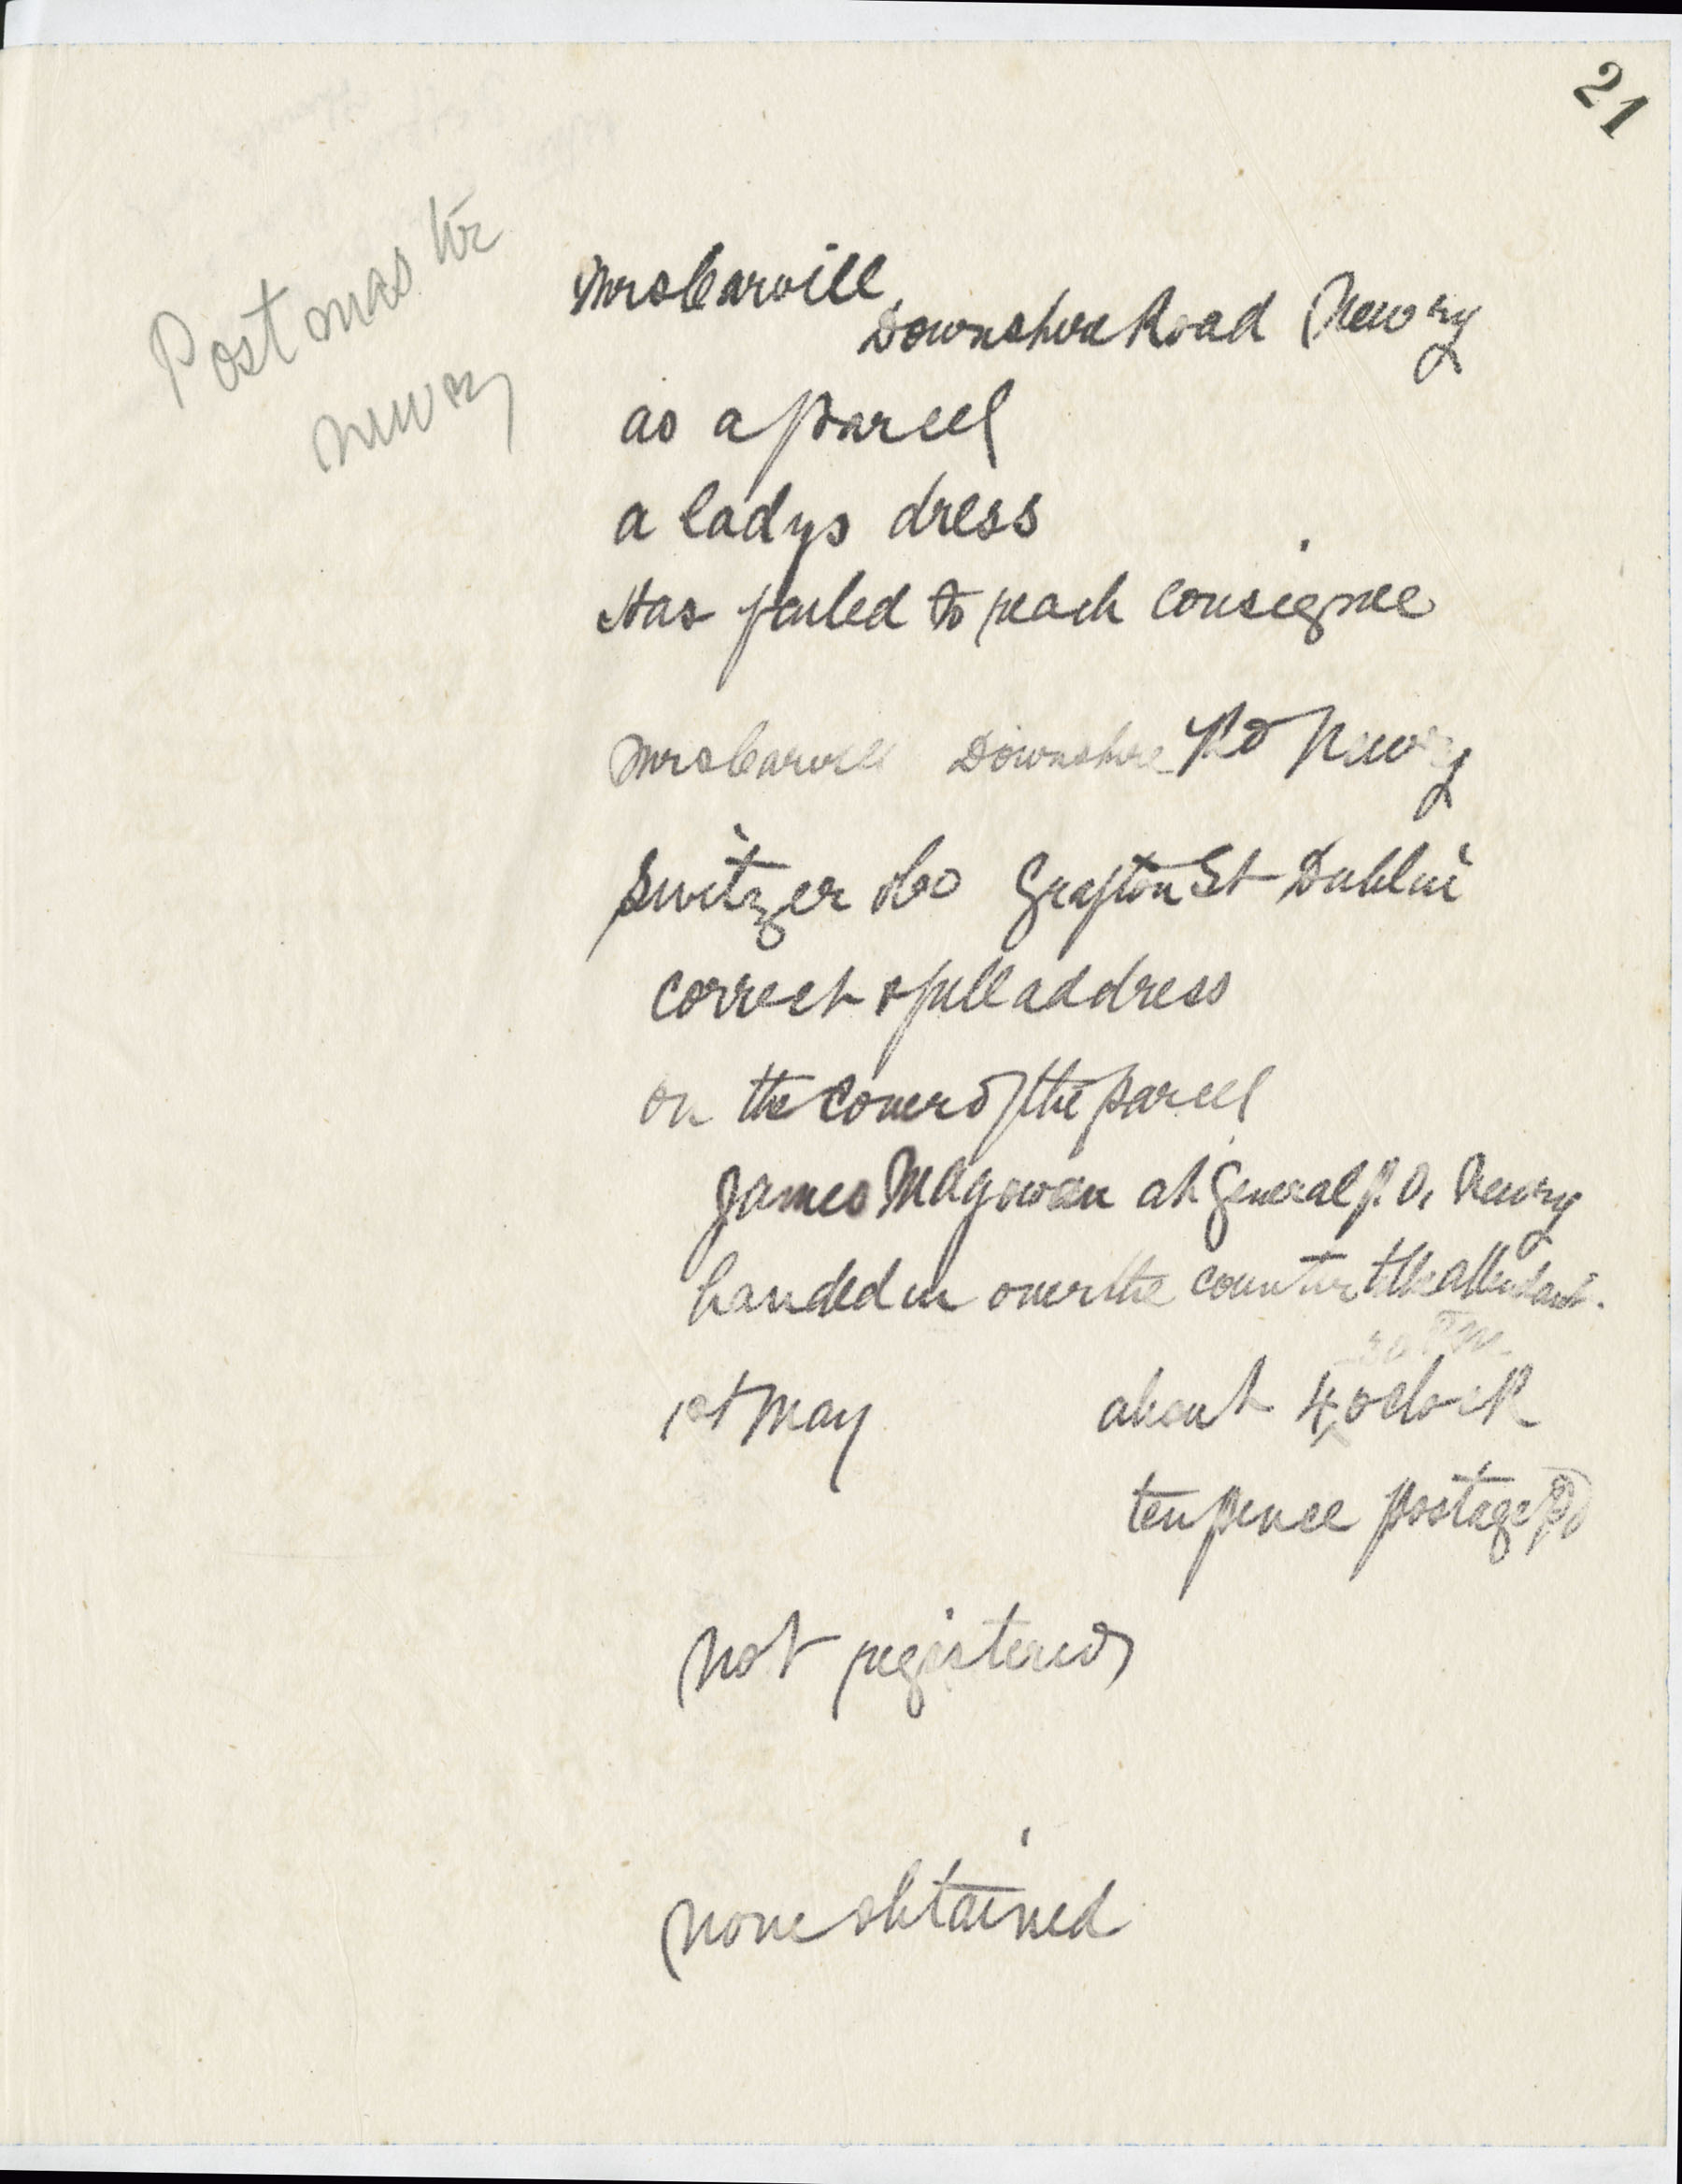 21
Postmaster
Newry
Mrs Carvill,
Downshire Road Newry
as a parcel
a ladys dress
Has failed to reach consignee
Mrs Carvill Downshire Rd Newry
Switzer & Co Grafton St Dublin
correct & full address
on the cover of the parcel
James Magowan at General P.O. Newry
handed in over the counter to the attendant.
30 PM
1st May about 4 oclock
tenpence postage Pd
Not registered
None obtained